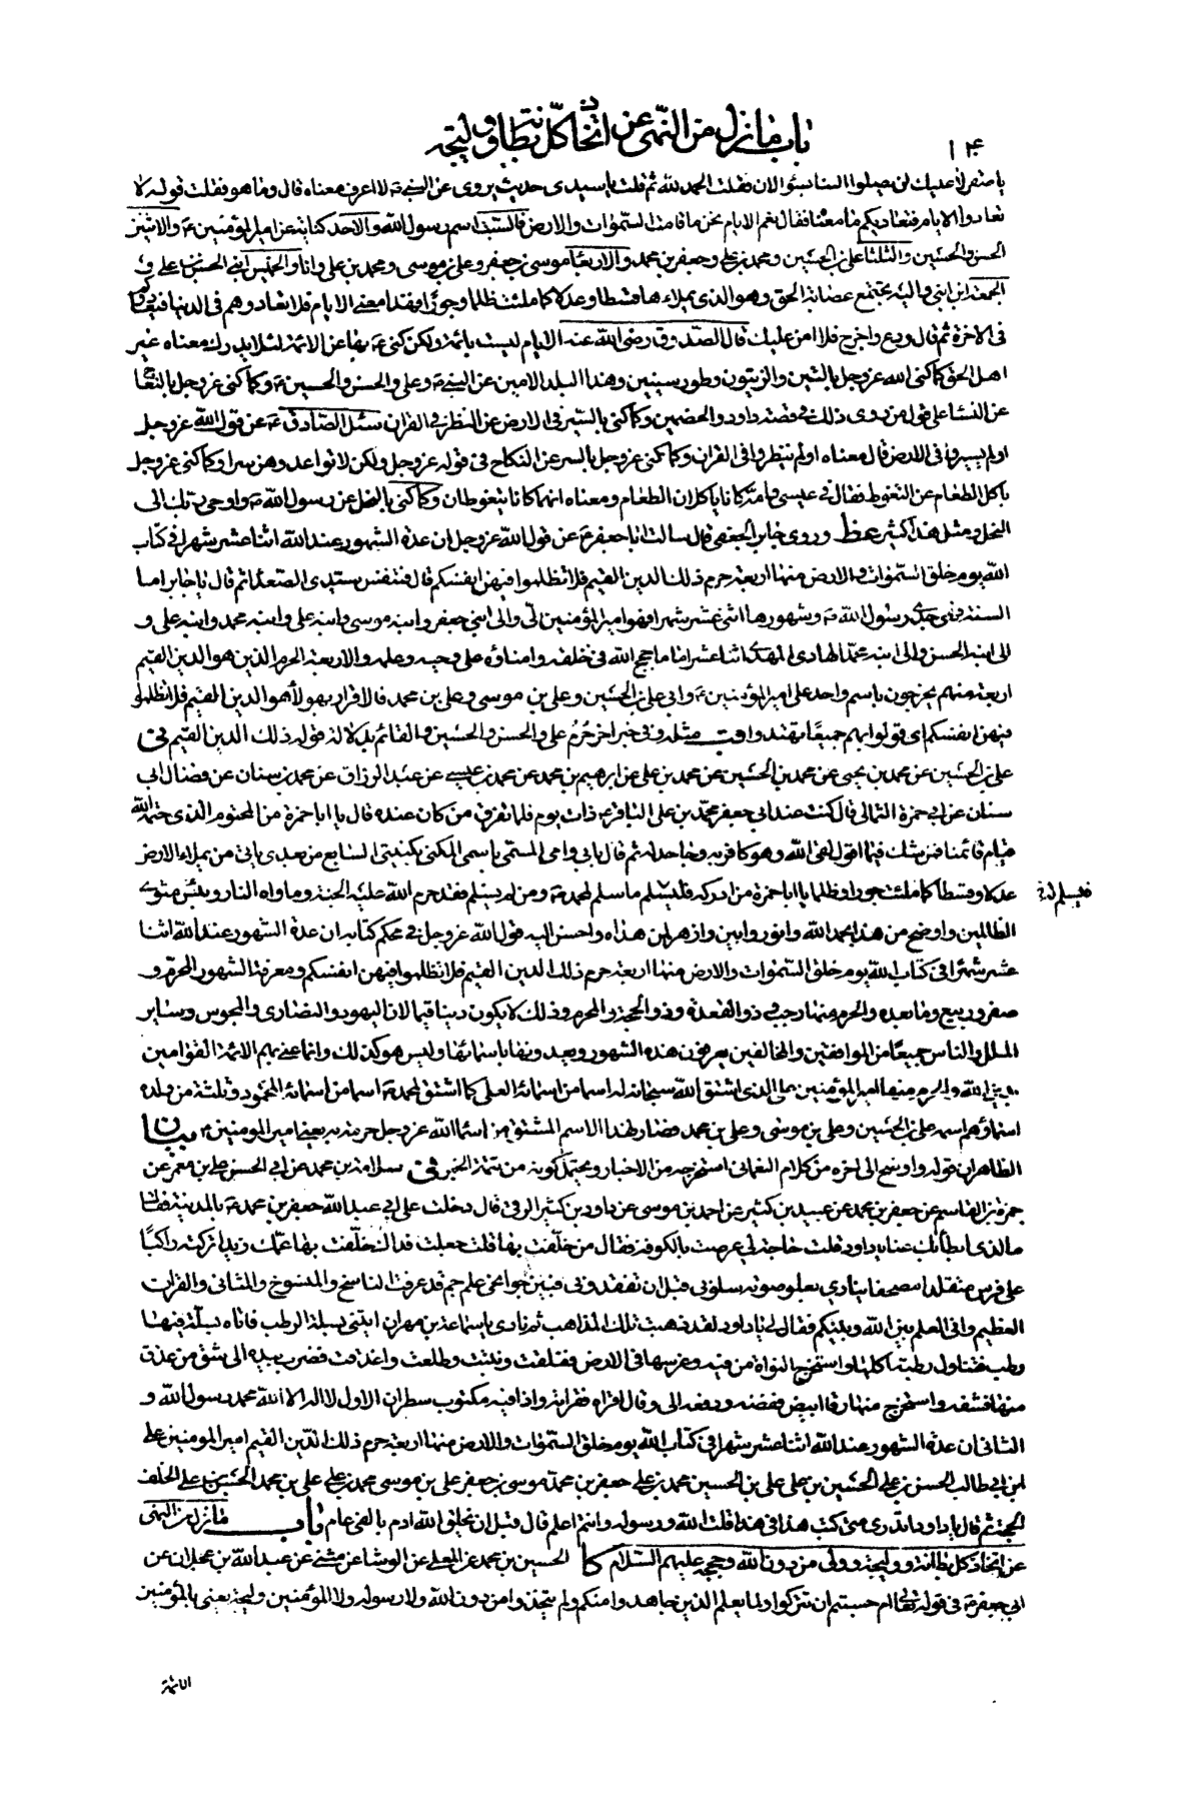 باب ما نزل من النهي عن اتخاذ كل بطانة و وليجة
١٠۴
يا صقر لا عليك لن يصلوا الينا بسوء الان فقلت الحمد لله ثم قلت يا سيدى حديث يروى عن النبى ص لا اعرف معناه قال وما هو فقلت قوله لا
تعادوا الايام فتعاديكم ما معناه فقال نعم الايام نحن ما قامت السموات والارض فالسبت اسم رسول الله والاحد كناية عن امير المؤمنين ع والاثنين
الحسن والحسين والثلثاء على بن الحسين ومحمد بن على وجعفر بن محمد والاربعاء موسى بن جعفر وعلى بن موسى ومحمد بن على وانا والخميس ابنى الحسن بن على و
الجمعة ابن ابنى واليه تجتمع عصابة الحق وهو الذى يملاءها قسطا وعدلا كما ملئت ظلما وجورا فهذا معنى الايام فلا تعادوهم فى الدنيا فيعادوكم
فى الاخرة ثم قال ودع واخرج فلا امن عليك قال الصدوق رضى الله عنه الايام ليست بائمة ولكن كنى ع بها عن الائمة لئلا يدرك معناه غير
اهل الحق كما كنى الله عز وجل بالتين والزيتون وطور سينين وهذا البلد الامين عن النبى ص وعلى والحسن والحسين ع وكما كنى عز وجل بالنعاج
عن النساء على قول من روى ذلك فى قصة داود والخصمين وكما كنى بالسير فى الارض عن النظر فى القران سئل الصادق ع عن قول الله عز وجل
اولم يسيروا فى الارض قال معناه اولم ينظروا فى القران وكما كنى عز وجل بالسر عن النكاح فى قوله عز وجل ولكن لا تواعدوهن سرا وكما كنى عز وجل
باكل الطعام عن التغوط فقال فى عيسى وامه كانا ياكلان الطعام ومعناه انهما كانا يتغوطان وكما كنى بالنحل عن رسول الله ص واوحى ربك الى
النحل ومثل هذا كثير غط وروى جابر الجعفى قال سالت ابا جعفر ع عن قول الله عز وجل ان عدة الشهور عند الله اثنا عشر شهرا فى كتاب
الله يوم خلق السموات والارض منها اربعة حرم ذلك الدين القيم فلا تظلموا فيهن انفسكم قال فتنفس سيدى الصعداء ثم قال يا جابر اما
السنة فهى جدى رسول الله ص وشهورها اثنى عشر شهرا فهو امير المؤمنين الى والى ابنى جعفر وابنه موسى وابنه على وابنه محمد وابنه على و
الى ابنه الحسن والى ابنه محمد الهادى المهدى اثنا عشر اماما حجج الله فى خلقه وامناؤه على وحيه وعلمه والاربعة الحرم الذين هم الدين القيم
اربعة منهم يخرجون باسم واحد على امير المؤمنين ع وابى على بن الحسين وعلى بن موسى وعلى بن محمد فالاقرار بهولاء هو الدين القيم فلا تظلموا
فيهن انفسكم اى قولوا بهم جميعا تهتدوا قب مثله وفى خبر اخر حرم على والحسن والحسين والقائم بدلالة قوله ذلك الدين القيم نى
على بن الحسين عن محمد بن يحيى عن محمد بن الحسين عن محمد بن على عن ابرهيم بن محمد عن محمد بن عيسى عن عبد الرزاق عن محمد بن سنان عن فضال ابى
سنان عن ابى حمزة الثمالى قال كنت عند ابى جعفر محمد بن على الباقر ع ذات يوم فلما تفرق من كان عنده قال يا ابا حمزة من المحتوم الذى حتمه الله
قيام قائمنا فمن شك فيما اقول لقى الله وهو كافر به وجاحد له ثم قال بابى وامى المسمى باسمى المكنى بكنيتى السابع من بعدى بابى من يملاء الارض
عدلا وقسطا كما ملئت جورا وظلما يا ابا حمزة من ادركه فليسلم ما سلم لمحمد ص ومن لم يسلم فقد حرم الله عليه الجنة وماواه النار وبئس مثوى
الظالمين واوضح من هذا بحمد الله وانور وابين وازهر لمن هداه واحسن اليه قول الله عز وجل فى محكم كتابه ان عدة الشهور عند الله اثنا
عشر شهرا فى كتاب الله يوم خلق السموات والارض منها اربعة حرم ذلك الدين القيم فلا تظلموا فيهن انفسكم ومعرفة الشهور المحرم و
صفر وربيع وما بعده والحرم منها رجب وذو القعدة وذو الحجة والمحرم وذلك لا يكون دينا قيما لان اليهود والنصارى والمجوس وساير
الملل والناس جميعا من الموافقين والمخالفين يعرفون هذه الشهور ويعدونها باسمائها وليس هو كذلك وانما عنى بهم الائمة القوامين
بدين الله والحرم منها امير المؤمنين على الذى اشتق الله سبحانه له اسما من اسمائه العلى كما اشتق لمحمد ص اسما من اسمائه المحمود وثلثة من ولده
اسماؤهم اسمه على بن الحسين وعلى بن موسى وعلى بن محمد فصار لهذا الاسم المشتق من اسماء الله عز وجل حرمة به يعنى امير المومنين ع بيان
الظاهر ان قوله واوضح الى اخره من كلام النعمانى استخرجه من الاخبار ويحتمل كونه من تتمة الخبر نى سلامة بن محمد عن ابى الحسن على بن معمر عن
حمزة بن القاسم عن جعفر بن محمد عن عبيد بن كثير عن احمد بن موسى عن داود بن كثير الرقى قال دخلت على ابى عبد الله جعفر بن محمد ع بالمدينة فقال
ما الذى ابطأ بك عنا يا داود قلت حاجة لى عرضت بالكوفة فقال من خلفت بها قلت جعلت فداك خلفت بها عمك زيدا تركته راكبا
على فرس متقلدا مصحفا ينادى بعلو صوته سلونى قبل ان تفقدونى فبين جوانحى علم جم قد عرفت الناسخ والمنسوخ والمثانى والقران
العظيم وانى العلم بين الله وبينكم فقال لى يا داود لقد ذهبت بك المذاهب ثم نادى يا سماعة بن مهران ايتنى بسلة الرطب فاتاه بسلة فيها
رطب فتناول رطبة اكلها واستخرج النواة من فيه وغرسها فى الارض ففلقت ونبتت وطلعت واعذقت فضرب بيده الى شق من عذق
منها فشقه واستخرج منها رقا ابيض ففضه ودفعه الى وقال اقراه فقراته واذا فيه مكتوب سطران الاول لا اله الا الله محمد رسول الله و
الثانى ان عدة الشهور عند الله اثنا عشر شهرا فى كتاب الله يوم خلق السموات والارض منها اربعة حرم ذلك الدين القيم امير المومنين على
ابن ابى طالب الحسن بن على الحسين بن على على بن الحسين محمد بن على جعفر بن محمد موسى بن جعفر على بن موسى محمد بن على على بن محمد الحسن بن على الخلف
الحجة ثم قال يا داود اتدرى متى كتب هذا فى هذا قلت الله ورسوله وانتم اعلم قال قبل ان يخلق الله ادم بالفى عام باب ما نزل من النهى
عن اتخاذ كل بطانة ووليجة وولى من دون الله وحججه عليهم السلام كا الحسين بن محمد عن المعلى عن الوشا عن مثنى عن عبد الله بن عجلان عن
ابى جعفر ع فى قوله تعالى ام حسبتم ان تتركوا ولما يعلم الذين جاهدوا منكم ولم يتخذوا من دون الله ولا رسوله ولا المؤمنين وليجة يعنى بالمؤمنين
الائمة